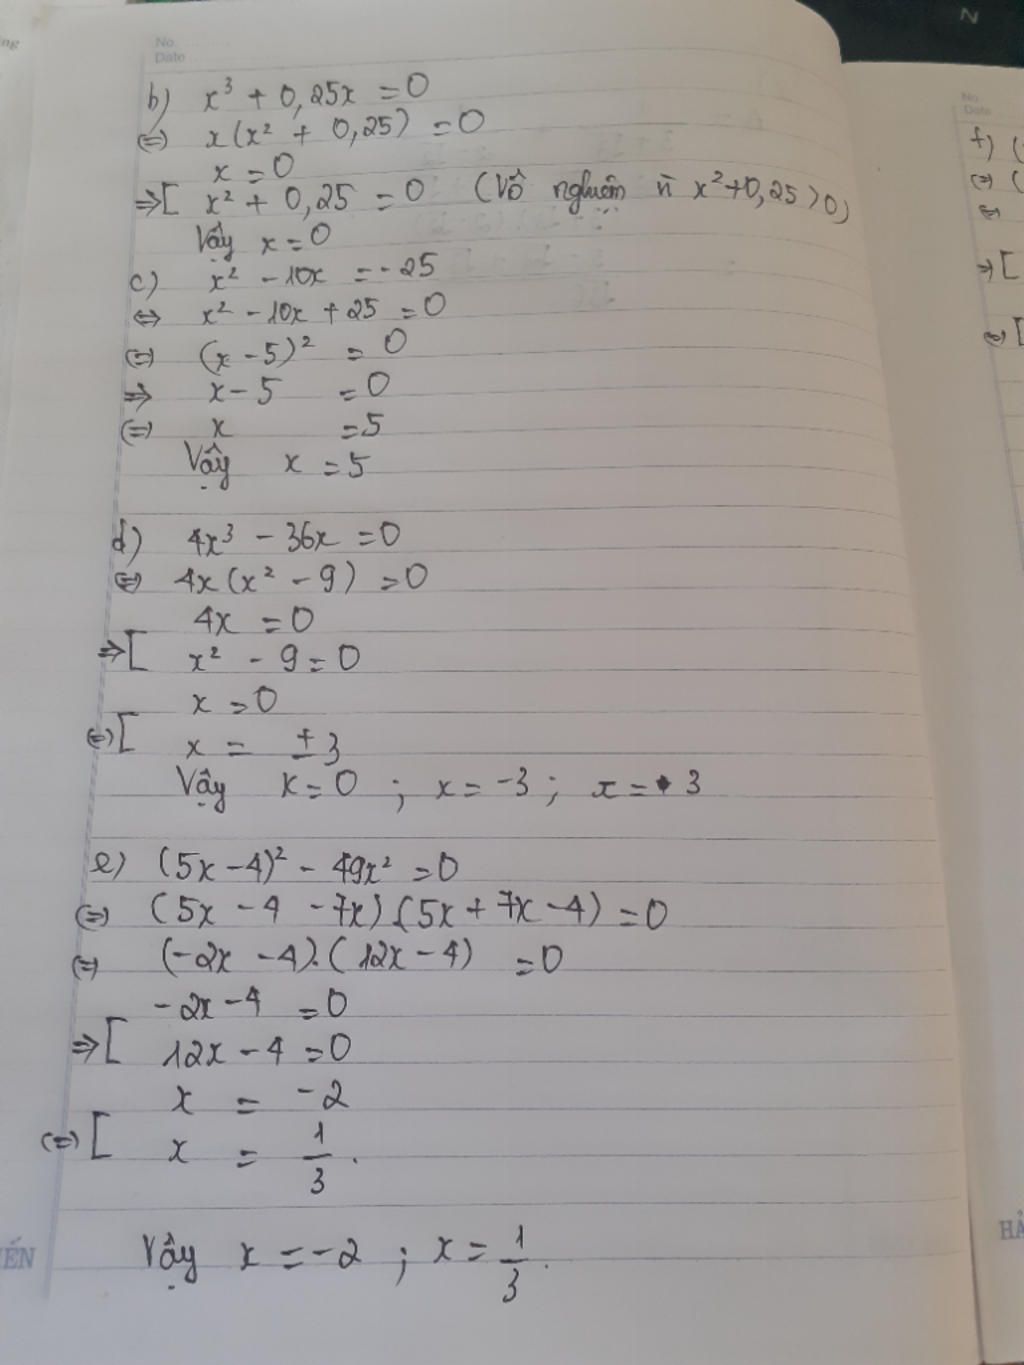 No.
Date
b) x³ + 0,25x = 0
⇔ x(x² + 0,25) = 0
x = 0
⇒[ x² + 0,25 = 0 (Vô nghiệm vì x²+0,25>0)
Vậy x = 0
c) x² - 10x = -25
⇔ x² - 10x + 25 = 0
⇔ (x - 5)² = 0
⇒ x - 5 = 0
⇔ x = 5
Vậy x = 5
d) 4x³ - 36x = 0
⇔ 4x(x² - 9) = 0
4x = 0
⇒[ x² - 9 = 0
x = 0
⇔[ x = ±3
Vậy x = 0 ; x = -3 ; x = 3
e) (5x - 4)² - 49x² = 0
⇔ (5x - 4 - 7x).(5x + 7x - 4) = 0
⇔ (-2x - 4).(12x - 4) = 0
-2x - 4 = 0
⇒[ 12x - 4 = 0
x = -2
⇔[ x = 1/3.
Vậy x = -2 ; x = 1/3.
No.
Date
f) (
⇔ (
⇔
⇒[
⇔[